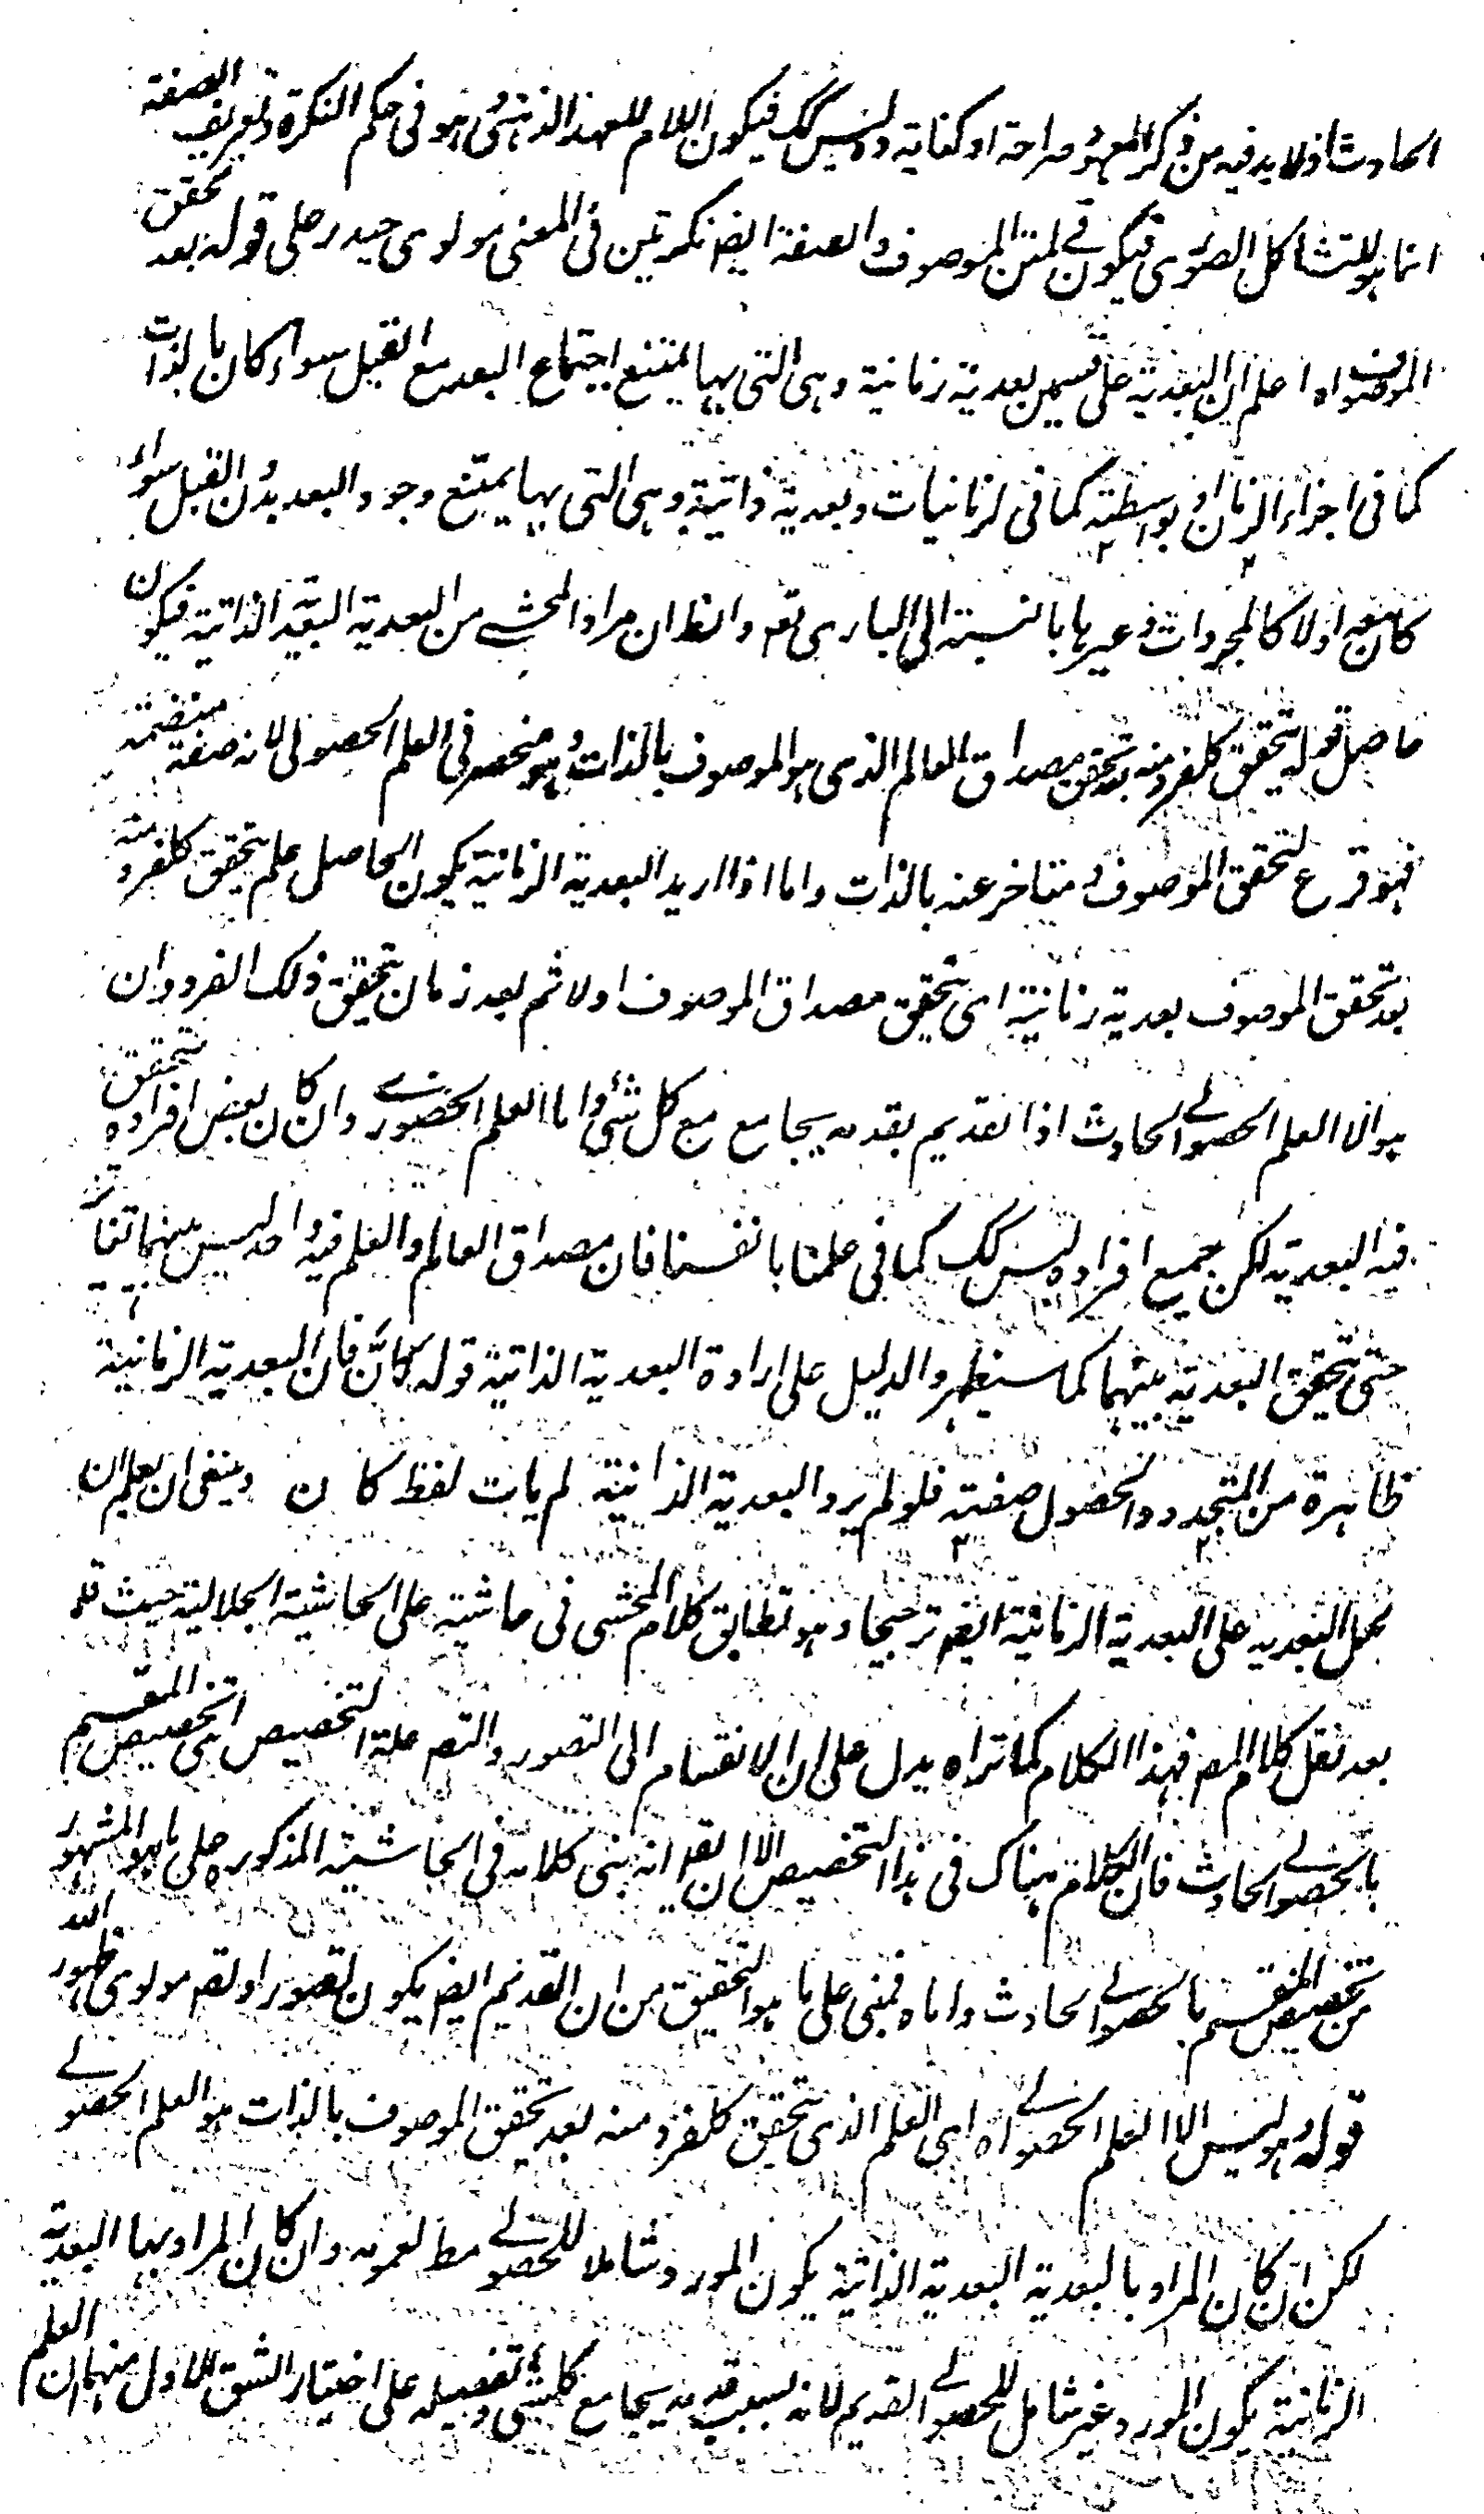 الحادث اذ لا بد فيه من ذكر المعهود صراحة او كناية وليس كك فيكون اللام للعهد الذهني وهو في حكم النكرة وتعريف الصفة
انما هو للتشاكل الصوري فيكون في المتن الموصوف والصفة ايضا نكرتين في المعنى مولوي حيدر علي قوله بعد تحقق
الموصوف اه اعلم ان البعدية على قسمين بعدية زمانية وهي التي بها يمتنع اجتماع البعد مع القبل سواء كان بالذات
كما في اجزاء الزمان او بواسطته كما في الزمانيات وبعدية ذاتية وهي التي بها يمتنع وجود البعد بدون القبل سواء
كان معه اولا كالمجردات وغيرها بالنسبة الى الباري تعه والظ ان مراد المحشي من البعدية البعدية الذاتية فيكون
حاصل قوله يتحقق كلفرد منه بعد تحقق مصداق العالم الذي هو الموصوف بالذات وهو منحصر في العلم الحصولي لانه صفة منضمة
فهو فرع لتحقق الموصوف ومتاخر عنه بالذات واما اذا اريد البعدية الزمانية يكون الحاصل علم يتحقق كلفرد منه
بعد تحقق الموصوف بعدية زمانية اي يتحقق مصداق الموصوف اولا ثم بعد زمان يتحقق ذلك الفرد وان
هو الا العلم الحصولي الحادث اذ القديم بقدمه يجامع مع كل شئ واما العلم الحضوري وان كان بعض افراده تتحقق
فيه البعدية لكن جميع افراده ليس كك كما في علمنا بانفسنا فان مصداق العالم والعلم فيه واحد ليس بينهما تغاير
حتى يتحقق البعدية بينهما كما سيظهر والدليل على ارادة البعدية الذاتية قوله كان فان البعدية الزمانية
ظاهرة من المتجدد والحصول صفته فلو لم يرد البعدية الذاتية لم يات لفظ كان وينبغي ان يعلم ان
لحمل البعدية على البعدية الزمانية ايضا ترجيحا وهو تطابق كلام المحشي في حاشيته على الحاشية الجلالية حيث قال
بعد نقل كلام المص فهذا الكلام كما تراه يدل على ان الانقسام الى التصور والتصديق علة التخصيص انتهى تخصيص المقسم
بالحصولي الحادث فان الكلام هناك في هذا التخصيص الا ان يقال انه بنى كلامه في الحاشية المذكورة على ما هو المشهور
من تخصيص المقسم بالحصولي الحادث واما ه فمبني على ما هو التحقيق من ان القديم ايضا يكون تصورا وتصديقا مولوي ظهور الله
قوله وهو ليس الا العلم الحصولي اه اي العلم الذي يتحقق كلفرد منه بعد تحقق الموصوف بالذات هو العلم الحصولي
لكن ان كان المراد بالبعدية البعدية الذاتية يكون المورد شاملا للحصولي مط لعمومه وان كان المراد بها البعدية
الزمانية يكون المورد غير شامل للحصولي القديم لانه بسبب قدمه يجامع كلشئ وتفصيله على اختيار الشق الاول منهما ان العلم